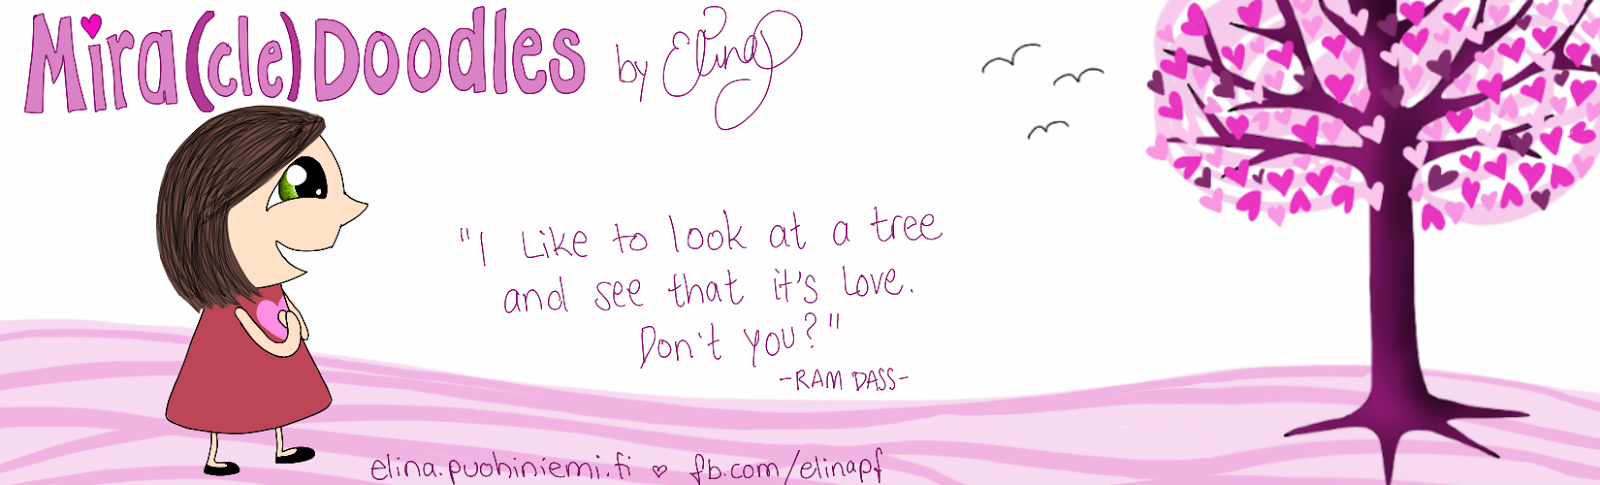 Mira(cle)Doodles by Elina
"I Like to look at a tree
and see that it's Love.
Don't you?"
-RAM DASS-
elina.puohiniemi.fi ♥ fb.com/elinapf